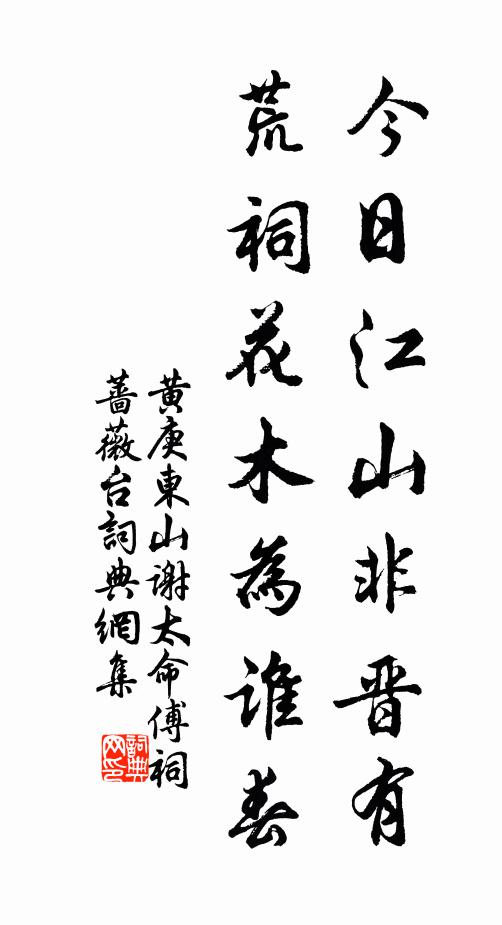 今日江山非晋有
荒祠花木為誰春
黄庚東山謝太命傅祠
薔薇台詞典網集
詞典
网印